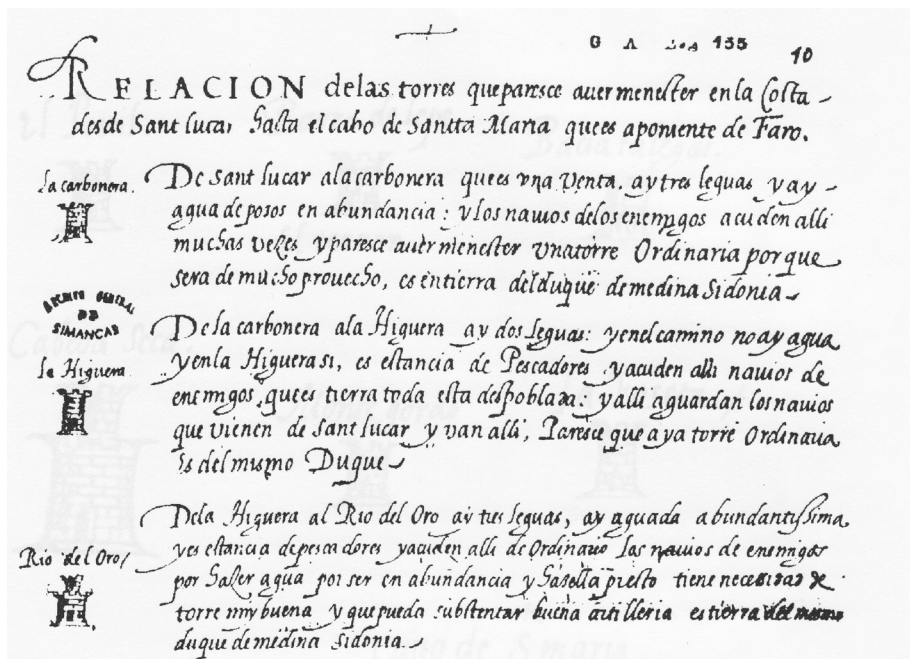 G A 135
10
RELACION delas torres queparesce avermenester enla Costa
desde Sant lucar hasta el cabo de Santta Maria quees aponiente de Faro.
la carbonera.
De sant lucar alacarbonera quees vna Venta. ay tres leguas y ay
agua de posos en abundancia: y los nauios delos enemigos acuden alli
muchas vezes yparesce aver menester vnatorre Ordinaria por que
sera de mucho prouecho, es entierra del duque de medina Sidonia
ARCHIVO GENERAL
DE
SIMANCAS
De la carbonera ala Higuera ay dos leguas: yenel camino no ay agua
la Higuera
yenla Higuera si, es estancia de Pescadores yacuden alli nauios de
enemigos, quees tierra toda esta despoblada: y alli aguardan los nauios
que vienen de sant lucar y van alli, Paresce que aya torre Ordinaria
Es del mismo Duque
Dela Higuera al Rio del Oro ay tres leguas, ay aguada abundantissima
Rio del Oro
yes estancia de pescadores yacuden alli de Ordinario los nauios de enemigos
por hazer agua por ser en abundancia y hazella presto tiene necesidad de
torre muy buena y que pueda substentar buena artilleria es tierra del mismo
duque de medina Sidonia.